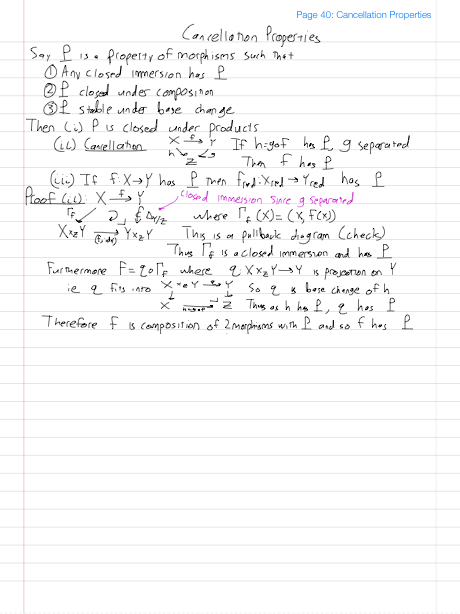 Page 40: Cancellation Properties
Cancellation Properties
Say P is a property of morphisms such that
① Any closed immersion has P
② P closed under composition
③ P stable under base change
Then (i) P is closed under products
(ii) Cancellation X →f Y If h=g∘f has P, g separated
h ↘ Z ↙ g Then f has P
(iii) If f: X→Y has P then f_red: X_red → Y_red has P
Proof (ii): X →f Y closed immersion since g separated
Γ_f ↙ ↓ Δ_Y/Z where Γ_f(X) = (X, f(X))
X×_Z Y → (f, id_Y) Y×_Z Y This is a pullback diagram (check)
Thus Γ_f is a closed immersion and has P
Furthermore F = q∘Γ_f where q: X×_Z Y → Y is projection on Y
ie q fits into X×_Z Y →q Y So q is base change of h
X → h=g∘f Z Thus as h has P, q has P
Therefore f is composition of 2 morphisms with P and so f has P